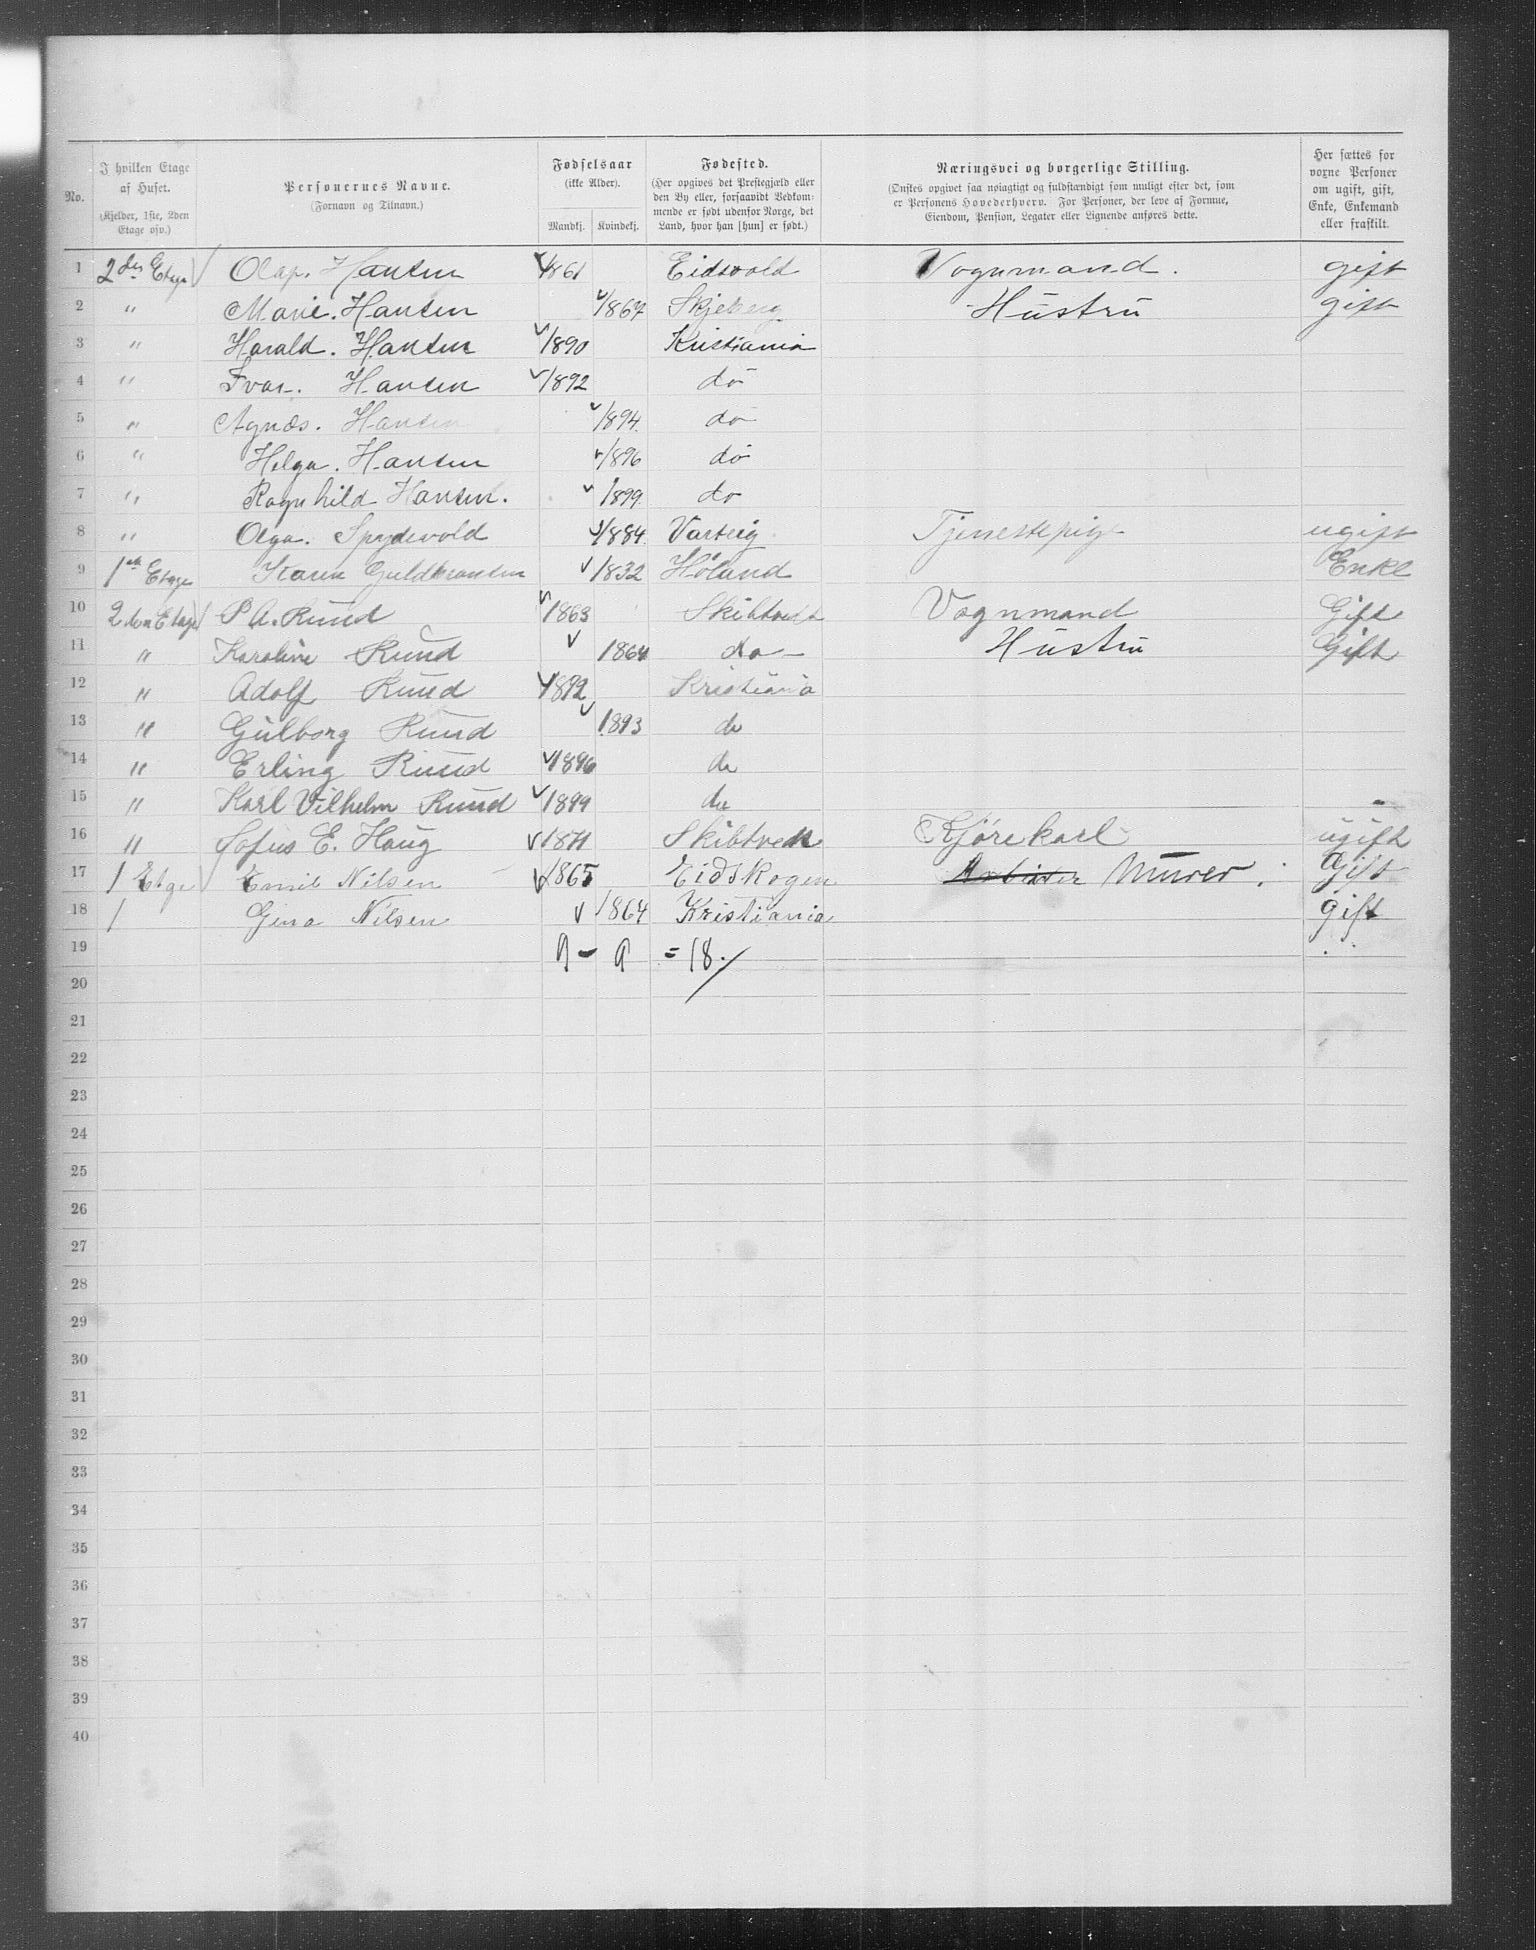 No. | I hvilken Etage af Huset. (Kjelder, 1ste, 2den Etage osv.) | Personernes Navne. (Fornavn og Tilnavn.) | Fødselsaar (ikke Alder). Mandkj. Kvindekj. | Fødested. (Her opgives det Prestegjæld eller den By eller, forsaavidt Vedkommende er født udenfor Norge, det Land, hvor han [hun] er født.) | Næringsvei og borgerlige Stilling. (Ønskes opgivet saa nøiagtigt og fuldstændigt som muligt efter det, som er Personens Hovederhverv. For Personer, der leve af Formue, Eiendom, Pension, Legater eller Lignende anføres dette. | Her sættes for voxne Personer om ugift, gift, Enke, Enkemand eller fraskilt.
1 2den Etage Olaf. Hansen 1861 Eidsvold Vognmand. gift
2 " Marie. Hansen 1867 Skjeberg Hustru gift
3 " Harald. Hansen 1890 Kristiania
4 " Ivar. Hansen 1892 do
5 " Agnæs. Hansen 1894 do
6 " Helga. Hansen 1896 do
7 " Ragnhild Hansen. 1899 do
8 " Olga. Spydevold 1884 Varteig Tjenestepige ugift
9 1ste Etage Karen Guldbransen 1832 Høland Enke
10 2den Etage P A. Ruud 1863 Skibtvedt Vognmand Gift
11 " Karoline Ruud 1864 do Hustru Gift
12 " Adolf Ruud 1892 Kristiania
13 " Gulborg Ruud 1893 do
14 " Erling Ruud 1896 do
15 " Karl Vilhelm Ruud 1899 do
16 " Sofus E. Haug 1871 Skibtvedt Kjørekarl ugift
17 1 Etge Emil Nilsen 1865 Eidskogen Arbider Murer. Gift
18 1 Gina Nilsen 1864 Kristiania gift
19 9 - 9 = 18.
20
21
22
23
24
25
26
27
28
29
30
31
32
33
34
35
36
37
38
39
40